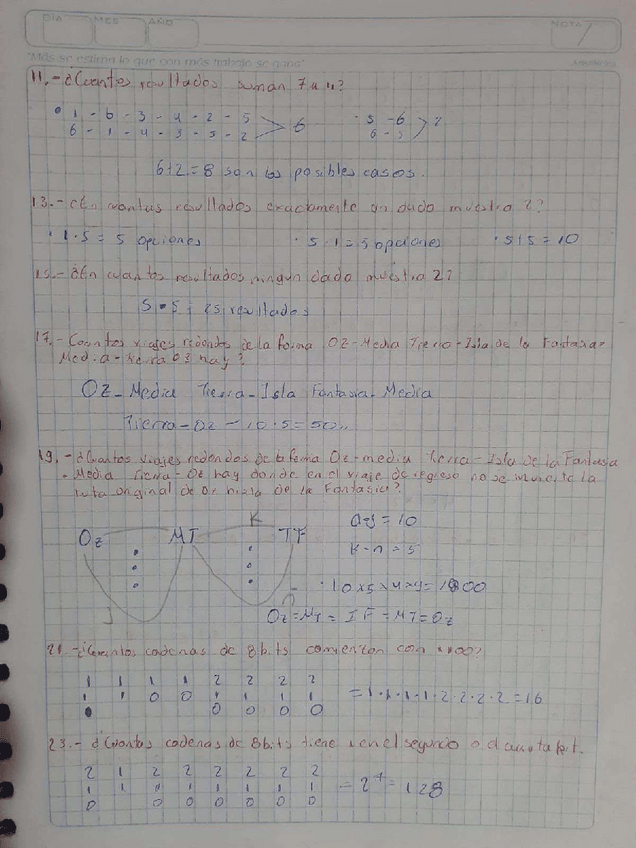 DIA MES AÑO NOTA
"Más se estima lo que con más trabajo se gana"
11.- ¿Cuantos resultados suman 7 u 11?
1 - 6 - 3 - 4 - 2 - 5 5 - 6
6 - 1 - 4 - 3 - 5 - 2 > 6 6 - 5 > 2
6+2=8 son los posibles casos.
13.- ¿En cuantos resultados exactamente un dado muestra 2?
1·5 = 5 opciones 5·1 = 5 opciones 5+5 = 10
15.- ¿En cuantos resultados ningun dado muestra 2?
5·5 = 25 resultados
17.- Cuantos viajes redondos de la forma Oz-Media Tierra-Isla de la Fantasia-
Media-tierra Oz hay?
Oz-Media Tierra-Isla Fantasia-Media
Tierra-Oz - 10·5=50
19.- ¿Cuantos viajes redondos de la forma Oz-media Tierra-Isla de la Fantasia
- Media Tierra-Oz hay donde en el viaje de regreso no se invierte la
ruta original de Oz a isla de la Fantasia?
K a-j = 10
Oz MT IF K-n = 5
10x5x4x9=1800
J n Oz=MT= IF =MT=Oz
21.-¿Cuantos cadenas de 8 bits comienzan con 1100?
1 1 1 1 2 2 2 2
1 1 0 0 1 1 1 1 =1·1·1·1·2·2·2·2=16
0 0 0 0
23.- ¿Cuantos cadenas de 8bits tiene 1 en el segundo o el cuarto bit.
2 1 2 2 2 2 2 2
1 1 1 1 1 1 1 1 = 2⁷ = 128
0 0 0 0 0 0 0